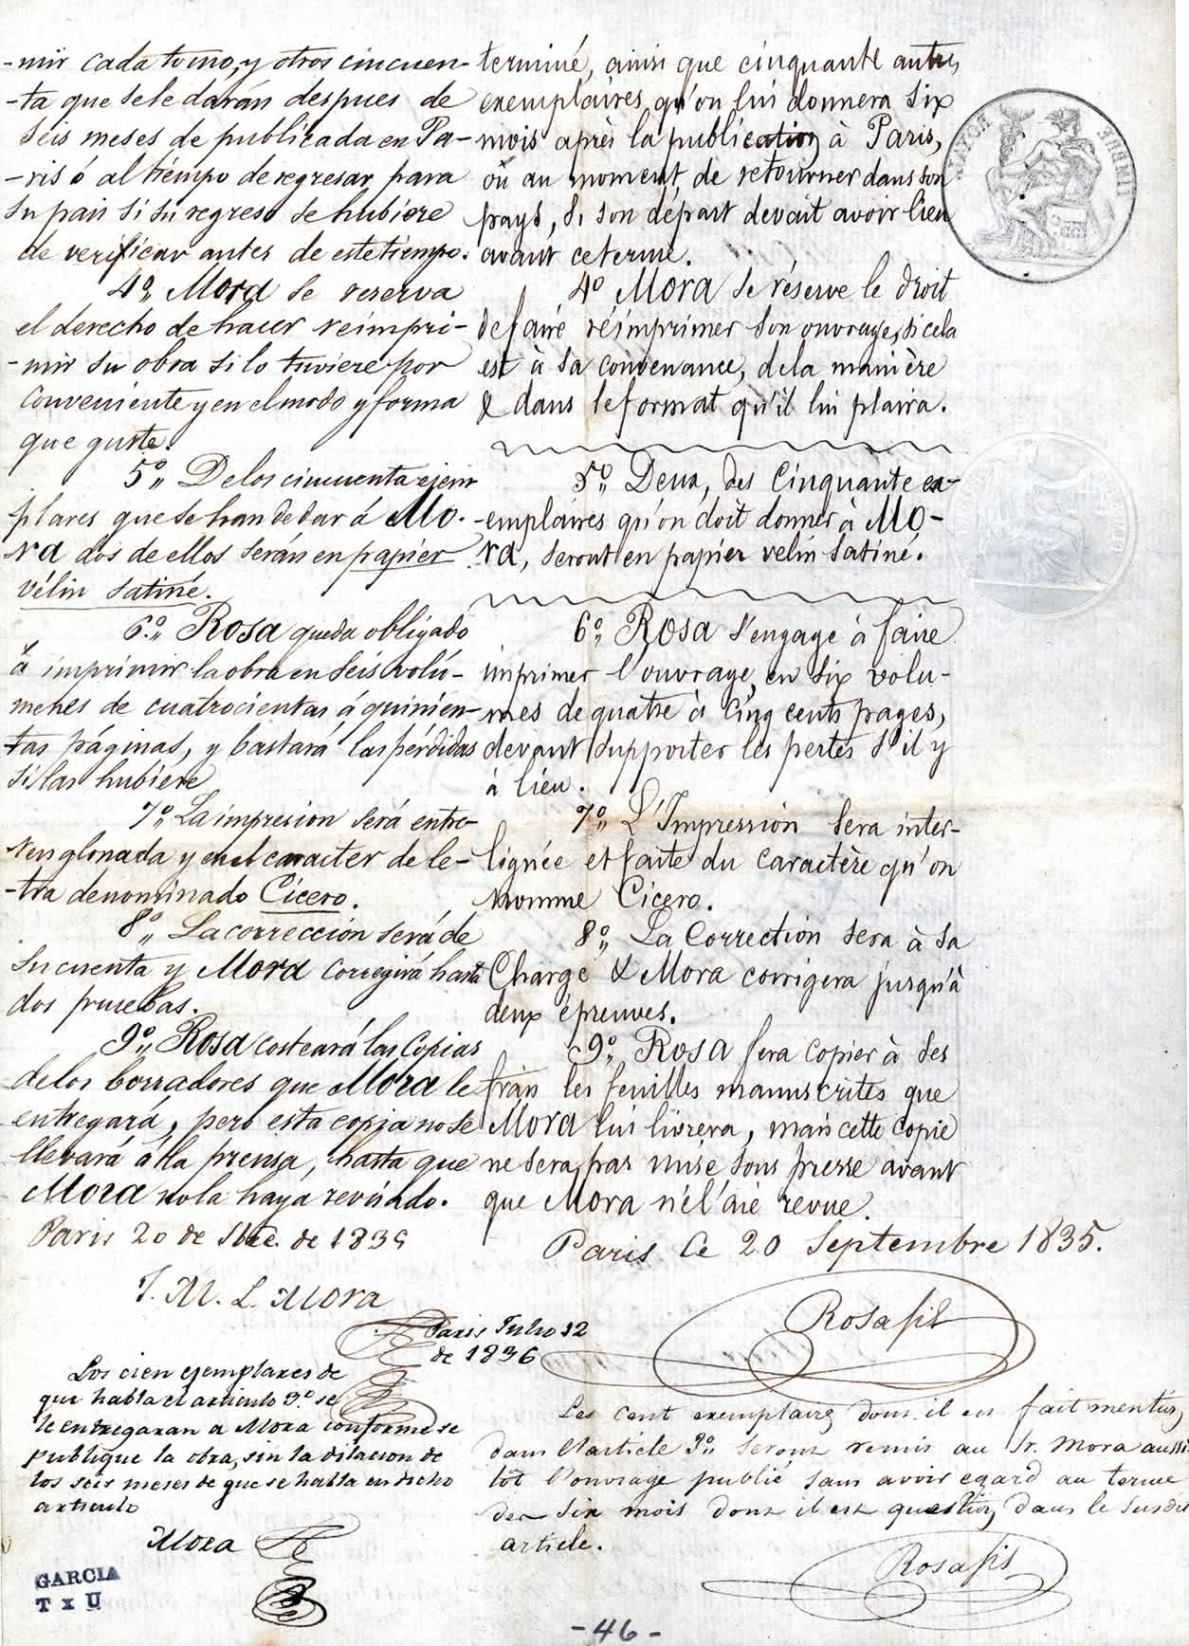 -mir cada tomo, y otros cincuen-
-ta que se le darán despues de
seis meses de publicada en Pa-
-ris ó al tiempo de regresar para
su pais si su regreso se hubiere
de verificar antes de este tiempo.
4º Mora se reserva
el derecho de hacer reimpri-
-mir su obra si lo tuviere por
conveniente y en el modo y forma
que guste.
5º De los cincuenta ejem
plares que se han de dar á Mo-
ra dos de ellos serán en papier
vélin satiné.
6º Rosa queda obligado
á imprimir la obra en seis volú-
menes de cuatrocientas á quinien-
tas páginas, y las pérdidas
si las hubiere
7º La impresion será entre-
renglonada y en el caracter de le-
-tra denominado Cicero.
8º La corrección será de
su cuenta y Mora corregirá hasta
dos pruebas.
9º Rosa costeará las copias
de los borradores que Mora le
entregará, pero esta copia no se
llevará á la prensa, hasta que
Mora no la haya revisado.
Paris 20 de de 1835
J. M. L. Mora
terminé, ainsi que cinquante autres
exemplaires, qu'on lui donnera six
mois après la publication à Paris,
ou au moment de retourner dans son
pays, si son départ devait avoir lieu
avant ce terme.
4º Mora se réserve le droit
de faire réimprimer son ouvrage, si cela
est à sa convenance, de la manière
& dans le format qu'il lui plaira.
5º Deux, des cinquante ex-
emplaires qu'on doit donner à Mo-
ra, seront en papier velin satiné.
6º Rosa s'engage à faire
imprimer l'ouvrage, en six volu-
mes de quatre à cinq cents pages,
devant supporter les pertes s'il y
à lieu.
7º L'Impression sera inter-
lignée et faite du caractère qu'on
nomme Cicero.
8º La Correction sera à sa
Charge & Mora corrigera jusqu'à
deux épreuves.
9º Rosa fera copier à ses
frais les feuilles manuscrites que
Mora lui livrera, mais cette copie
ne sera pas mise sous presse avant
que Mora ne l'aie revue.
Paris le 20 Septembre 1835.
Rosa fils
Paris Julio 12
de 1836
Los cien ejemplares de
que habla el articulo 3º se
le entregaran a Mora conforme se
publique la obra, sin la dilacion de
los seis meses de que se habla en dicho
articulo
Mora
Les cent exemplaires dont il est fait mention
dans l'article 3º seront remis au Sr. Mora aussi
tot l'ouvrage publié sans avoir egard au terme
des six mois dont il est question dans le susdit
article.
Rosa fils
GARCIA
T x U
-46-
ROYAL
TIMBRE